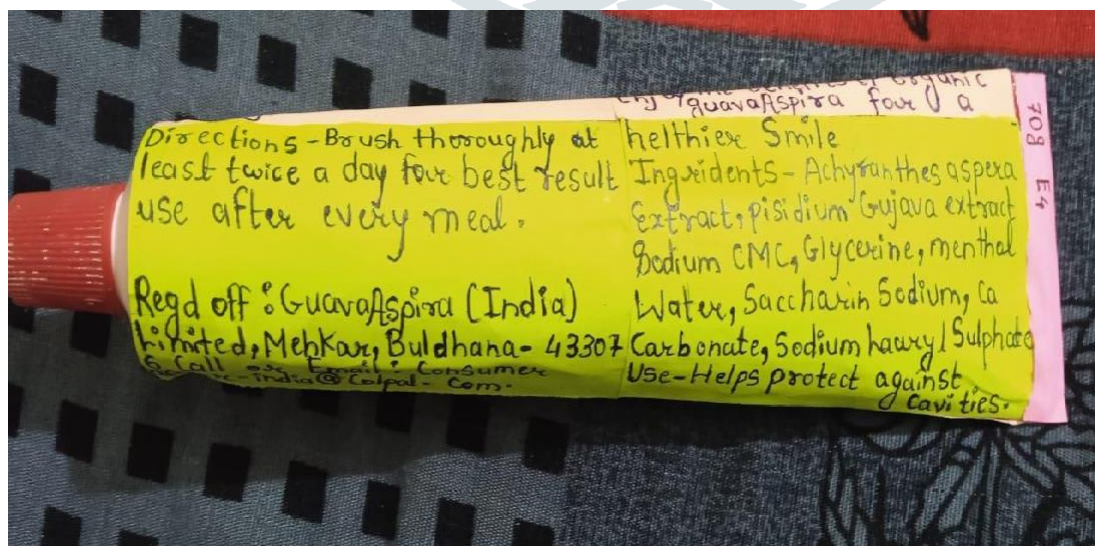 Directions - Brush thoroughly at
least twice a day four best result
use after every meal.
Regd off : GuavaAspira (India)
Limited, Mehkar, Buldhana - 43307
Call or Email : Consumer
india@Colpal-com.
benefits of organic
guavaAspira four a
helthier Smile
Ingridents - Achyranthes aspera
Extract, pisidium Gujava extract
Sodium CMC, Glycerine, menthal
Water, Saccharin Sodium, Ca
Carbonate, Sodium hauryl Sulphate
Use - Helps protect against
cavities.
70g E4